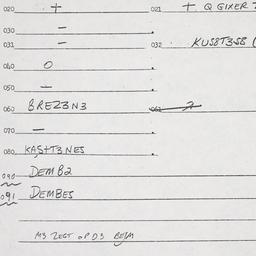 020 + 021 + Q GIXER
030 —
031 — 032 KUS8T3S8 (
040 O
050 —
060 BREZ3N3
070 —
080 KAS+T3NES
090 DEMB2
091 DEMBES
M3 ZEGT OP D3